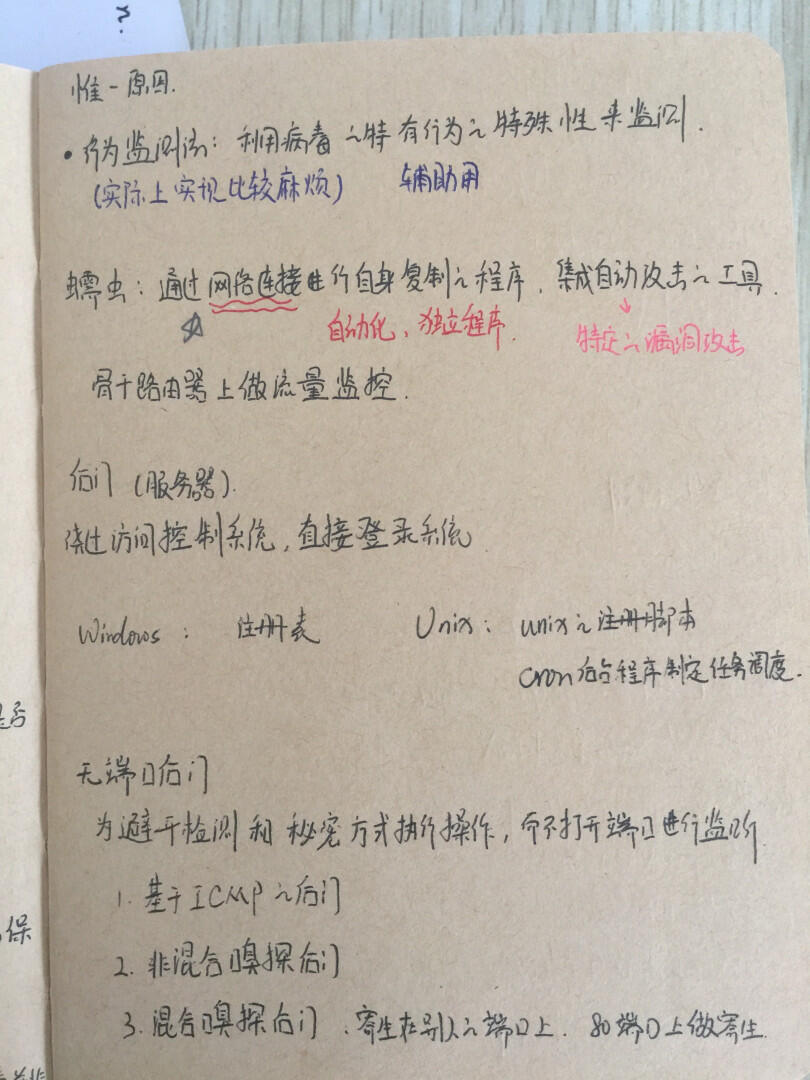 惟一原因.
• 行为监测法: 利用病毒之特有行为之特殊性来监测.
(实际上实现比较麻烦) 辅助用
蠕虫: 通过网络连接进行自身复制之程序. 集成自动攻击之工具.
自动化、独立程序. 特定之漏洞攻击
骨干路由器上做流量监控.
后门 (服务器).
绕过访问控制系统, 直接登录系统
Windows: 注册表 Unix: unix之注册脚本
cron后台程序制定任务调度.
无端口后门
为避开检测和秘密方式执行操作, 而不打开端口进行监听
1. 基于ICMP之后门
2. 非混合嗅探后门
3. 混合嗅探后门. 寄生在别人之端口上. 80端口上做寄生
是否
保